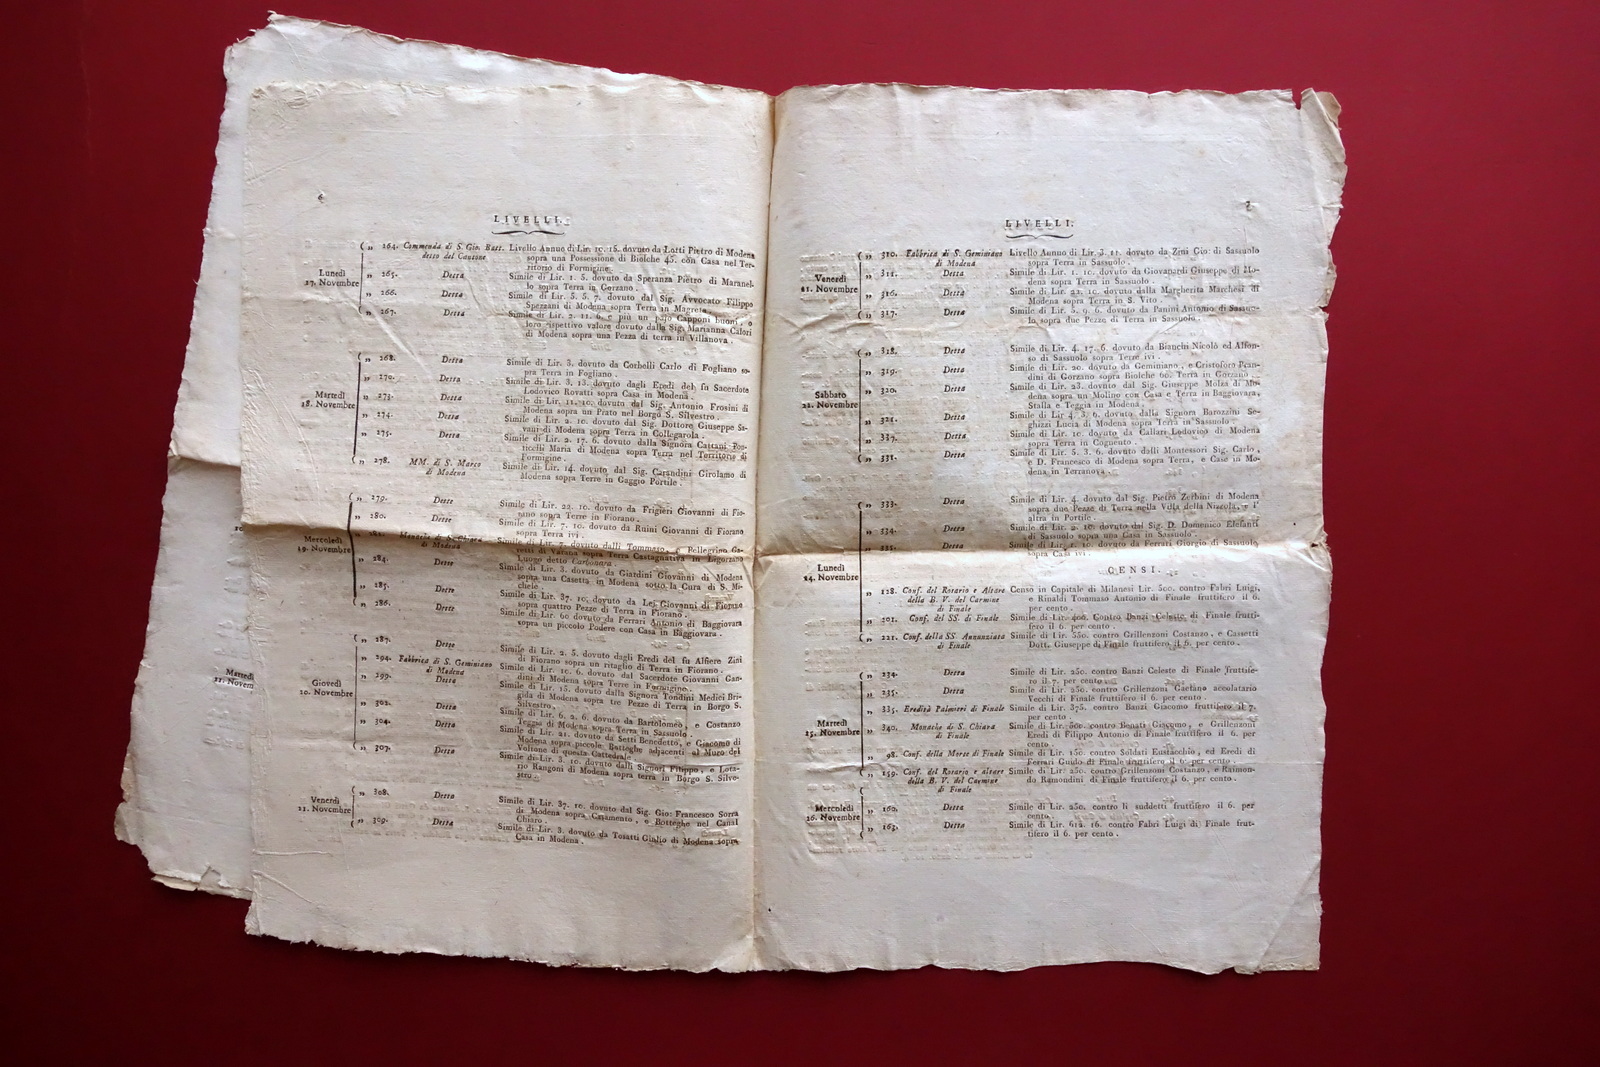 LIVELLI.
Lunedì
17. Novembre
„ 264. Commenda di S. Gio. Batt. detto del Cantone
Livello Annuo di Lir. 10. 15. dovuto da Lotti Pietro di Modena
sopra una Possessione di Biolche 45. con Casa nel Ter-
ritorio di Formigine.
„ 265. Detta Simile di Lir. 1. 5. dovuto da Speranza Pietro di Maranel-
lo sopra Terra in Gorzano.
„ 266. Detta Simile di Lir. 5. 5. 7. dovuto dal Sig. Avvocato Filippo
Spezzani di Modena sopra Terra in Magreta.
„ 267. Detta Simile di Lir. 2. 11. 6. e più un pajo Capponi buoni, o
loro rispettivo valore dovuto dalla Sig. Marianna Calori
di Modena sopra una Pezza di terra in Villanova.
Martedì
18. Novembre
„ 268. Detta Simile di Lir. 3. dovuto da Corbelli Carlo di Fogliano so-
pra Terra in Fogliano.
„ 270. Detta Simile di Lir. 3. 13. dovuto dagli Eredi del fu Sacerdote
Lodovico Rovatti sopra Casa in Modena.
„ 273. Detta Simile di Lir. 11. 10. dovuto dal Sig. Antonio Frosini di
Modena sopra un Prato nel Borgo S. Silvestro.
„ 274. Detta Simile di Lir. 2. 10. dovuto dal Sig. Dottore Giuseppe Sa-
vani di Modena sopra Terra in Collegarola.
„ 275. Detta Simile di Lir. 2. 17. 6. dovuto dalla Signora Cattani
Maria di Modena sopra Terra nel Territorio di
Formigine.
„ 278. MM. di S. Marco di Modena
Simile di Lir. 14. dovuto dal Sig. Carandini Girolamo di
Modena sopra Terre in Gaggio Portile.
Mercoledì
19. Novembre
„ 279. Dette Simile di Lir. 22. 10. dovuto da Frigieri Giovanni di Fio-
rano sopra Terre in Fiorano.
„ 280. Dette Simile di Lir. 7. 10. dovuto da Ruini Giovanni di Fiorano
sopra Terra ivi.
Monache di S. Chiara di Modena
Simile di Lir. 7. dovuto dalli Tommaso, e Pellegrino Ga-
di Varana sopra Terra Castagnativa in Ligorzano
Luogo detto Carbonara.
„ 284. Dette Simile di Lir. 3. dovuto da Giardini Giovanni di Modena
sopra una Casetta in Modena sotto la Cura di S. Mi-
chele.
„ 285. Dette Simile di Lir. 37. 10. dovuto da Lei Giovanni di Fiorano
sopra quattro Pezze di Terra in Fiorano.
„ 286. Dette Simile di Lir. 60 dovuto da Ferrari Antonio di Baggiovara
sopra un piccolo Podere con Casa in Baggiovara.
Giovedì
20. Novembre
„ 287. Dette Simile di Lir. 2. 5. dovuto dagli Eredi del fu Alfiere Zini
di Fiorano sopra un ritaglio di Terra in Fiorano.
„ 294. Fabbrica di S. Geminiano di Modena
Simile di Lir. 10. 6. dovuto dal Sacerdote Giovanni Gan-
dini di Modena sopra Terre in Formigine.
„ 299. Detta Simile di Lir. 15. dovuto dalla Signora Tondini Medici Bri-
gida di Modena sopra tre Pezze di Terra in Borgo S.
Silvestro.
„ 302. Detta Simile di Lir. 6. 2. 6. dovuto da Bartolomeo, e Costanzo
Teggia di Modena sopra Terra in Sassuolo.
„ 304. Detta Simile di Lir. 21. dovuto da Setti Benedetto, e Giacomo di
Modena sopra piccole Botteghe adjacenti al Muro del
Voltone di questa Cattedrale.
„ 307. Detta Simile di Lir. 3. 10. dovuto dalli Signori Filippo, e Lota-
rio Rangoni di Modena sopra terra in Borgo S. Silve-
stro.
Venerdì
21. Novembre
„ 308. Detta Simile di Lir. 37. 10. dovuto dal Sig. Gio: Francesco Sorra
di Modena sopra Casamento, e Botteghe nel Canal
Chiaro.
„ 309. Detta Simile di Lir. 3. dovuto da Tosatti Giulio di Modena sopra
Casa in Modena.
Martedì
11. Novem
7
LIVELLI.
Venerdì
21. Novembre
„ 310. Fabbrica di S. Geminiano di Modena
Livello Annuo di Lir. 3. 11. dovuto da Zini Gio: di Sassuolo
sopra Terra in Sassuolo.
„ 311. Detta Simile di Lir. 1. 10. dovuto da Giovanardi Giuseppe di Mo-
dena sopra Terra in Sassuolo.
„ 316. Detta Simile di Lir. 22. 10. dovuto dalla Margherita Marchesi di
Modena sopra Terra in S. Vito.
„ 317. Detta Simile di Lir. 5. 9. 6. dovuto da Panini Antonio di Sassuo-
lo sopra due Pezze di Terra in Sassuolo.
Sabbato
22. Novembre
„ 318. Detta Simile di Lir. 4. 17. 6. dovuto da Bianchi Nicolò ed Alfon-
so di Sassuolo sopra Terre ivi.
„ 319. Detta Simile di Lir. 20. dovuto da Geminiano, e Cristoforo Pran-
dini di Gorzano sopra Biolche 60. Terra in Gorzano.
„ 320. Detta Simile di Lir. 23. dovuto dal Sig. Giuseppe Molza di Mo-
dena sopra un Molino con Casa e Terra in Baggiovara,
Stalla e Teggia in Modena.
„ 321. Detta Simile di Lir 4. 3. 6. dovuto dalla Signora Barozzini Se-
ghizzi Lucia di Modena sopra Terra in Sassuolo.
„ 327. Detta Simile di Lir. 10. dovuto da Callari Lodovico di Modena
sopra Terra in Cognento.
„ 331. Detta Simile di Lir. 5. 3. 6. dovuto dalli Montessori Sig. Carlo,
e D. Francesco di Modena sopra Terra, e Case in Mo-
dena in Terranova.
Lunedì
24. Novembre
„ 333. Detta Simile di Lir. 4. dovuto dal Sig. Pietro Zerbini di Modena
sopra due Pezze di Terra nella Villa della Nizzola, e l'
altra in Portile.
„ 334. Detta Simile di Lir. 2. 10. dovuto dal Sig. D. Domenico Elefanti
di Sassuolo sopra una Casa in Sassuolo.
„ 335. Detta Simile di Lir. 1. 10. dovuto da Ferrari Giorgio di Sassuolo
sopra Casa ivi.
CENSI.
„ 128. Conf. del Rosario e Altare della B. V. del Carmine di Finale
Censo in Capitale di Milanesi Lir. 500. contro Fabri Luigi,
e Rinaldi Tommaso Antonio di Finale fruttifero il 6.
per cento.
„ 201. Conf. del SS. di Finale Simile di Lir. 400. Contro Banzi Celeste di Finale frutti-
fero il 6. per cento.
„ 221. Conf. della SS Annunziata di Finale
Simile di Lir. 550. contro Grillenzoni Costanzo, e Cassetti
Dott. Giuseppe di Finale fruttifero il 6. per cento.
Martedì
25. Novembre
„ 234. Detta Simile di Lir. 250. contro Banzi Celeste di Finale fruttife-
ro il 7. per cento.
„ 235. Detta Simile di Lir. 250. contro Grillenzoni Gaetano accolatario
Vecchi di Finale fruttifero il 6. per cento.
„ 335. Eredità Palmieri di Finale Simile di Lir. 375. contro Banzi Giacomo fruttifero il 7.
per cento.
„ 340. Monache di S. Chiara di Finale
Simile di Lir. 500. contro Benati Giacomo, e Grillenzoni
Eredi di Filippo Antonio di Finale fruttifero il 6. per
cento.
„ 98. Conf. della Morte di Finale Simile di Lir. 150. contro Soldati Eustacchio, ed Eredi di
Ferrari Guido di Finale fruttifero il 6. per cento.
„ 159. Conf. del Rosario e altare della B. V. del Carmine di Finale
Simile di Lir. 250. contro Grillenzoni Costanzo, e Raimon-
do Ramondini di Finale fruttifero il 6. per cento.
Mercoledì
26. Novembre
„ 160. Detta Simile di Lir. 250. contro li suddetti fruttifero il 6. per
cento.
„ 163. Detta Simile di Lir. 612. 16. contro Fabri Luigi di Finale frut-
tifero il 6. per cento.